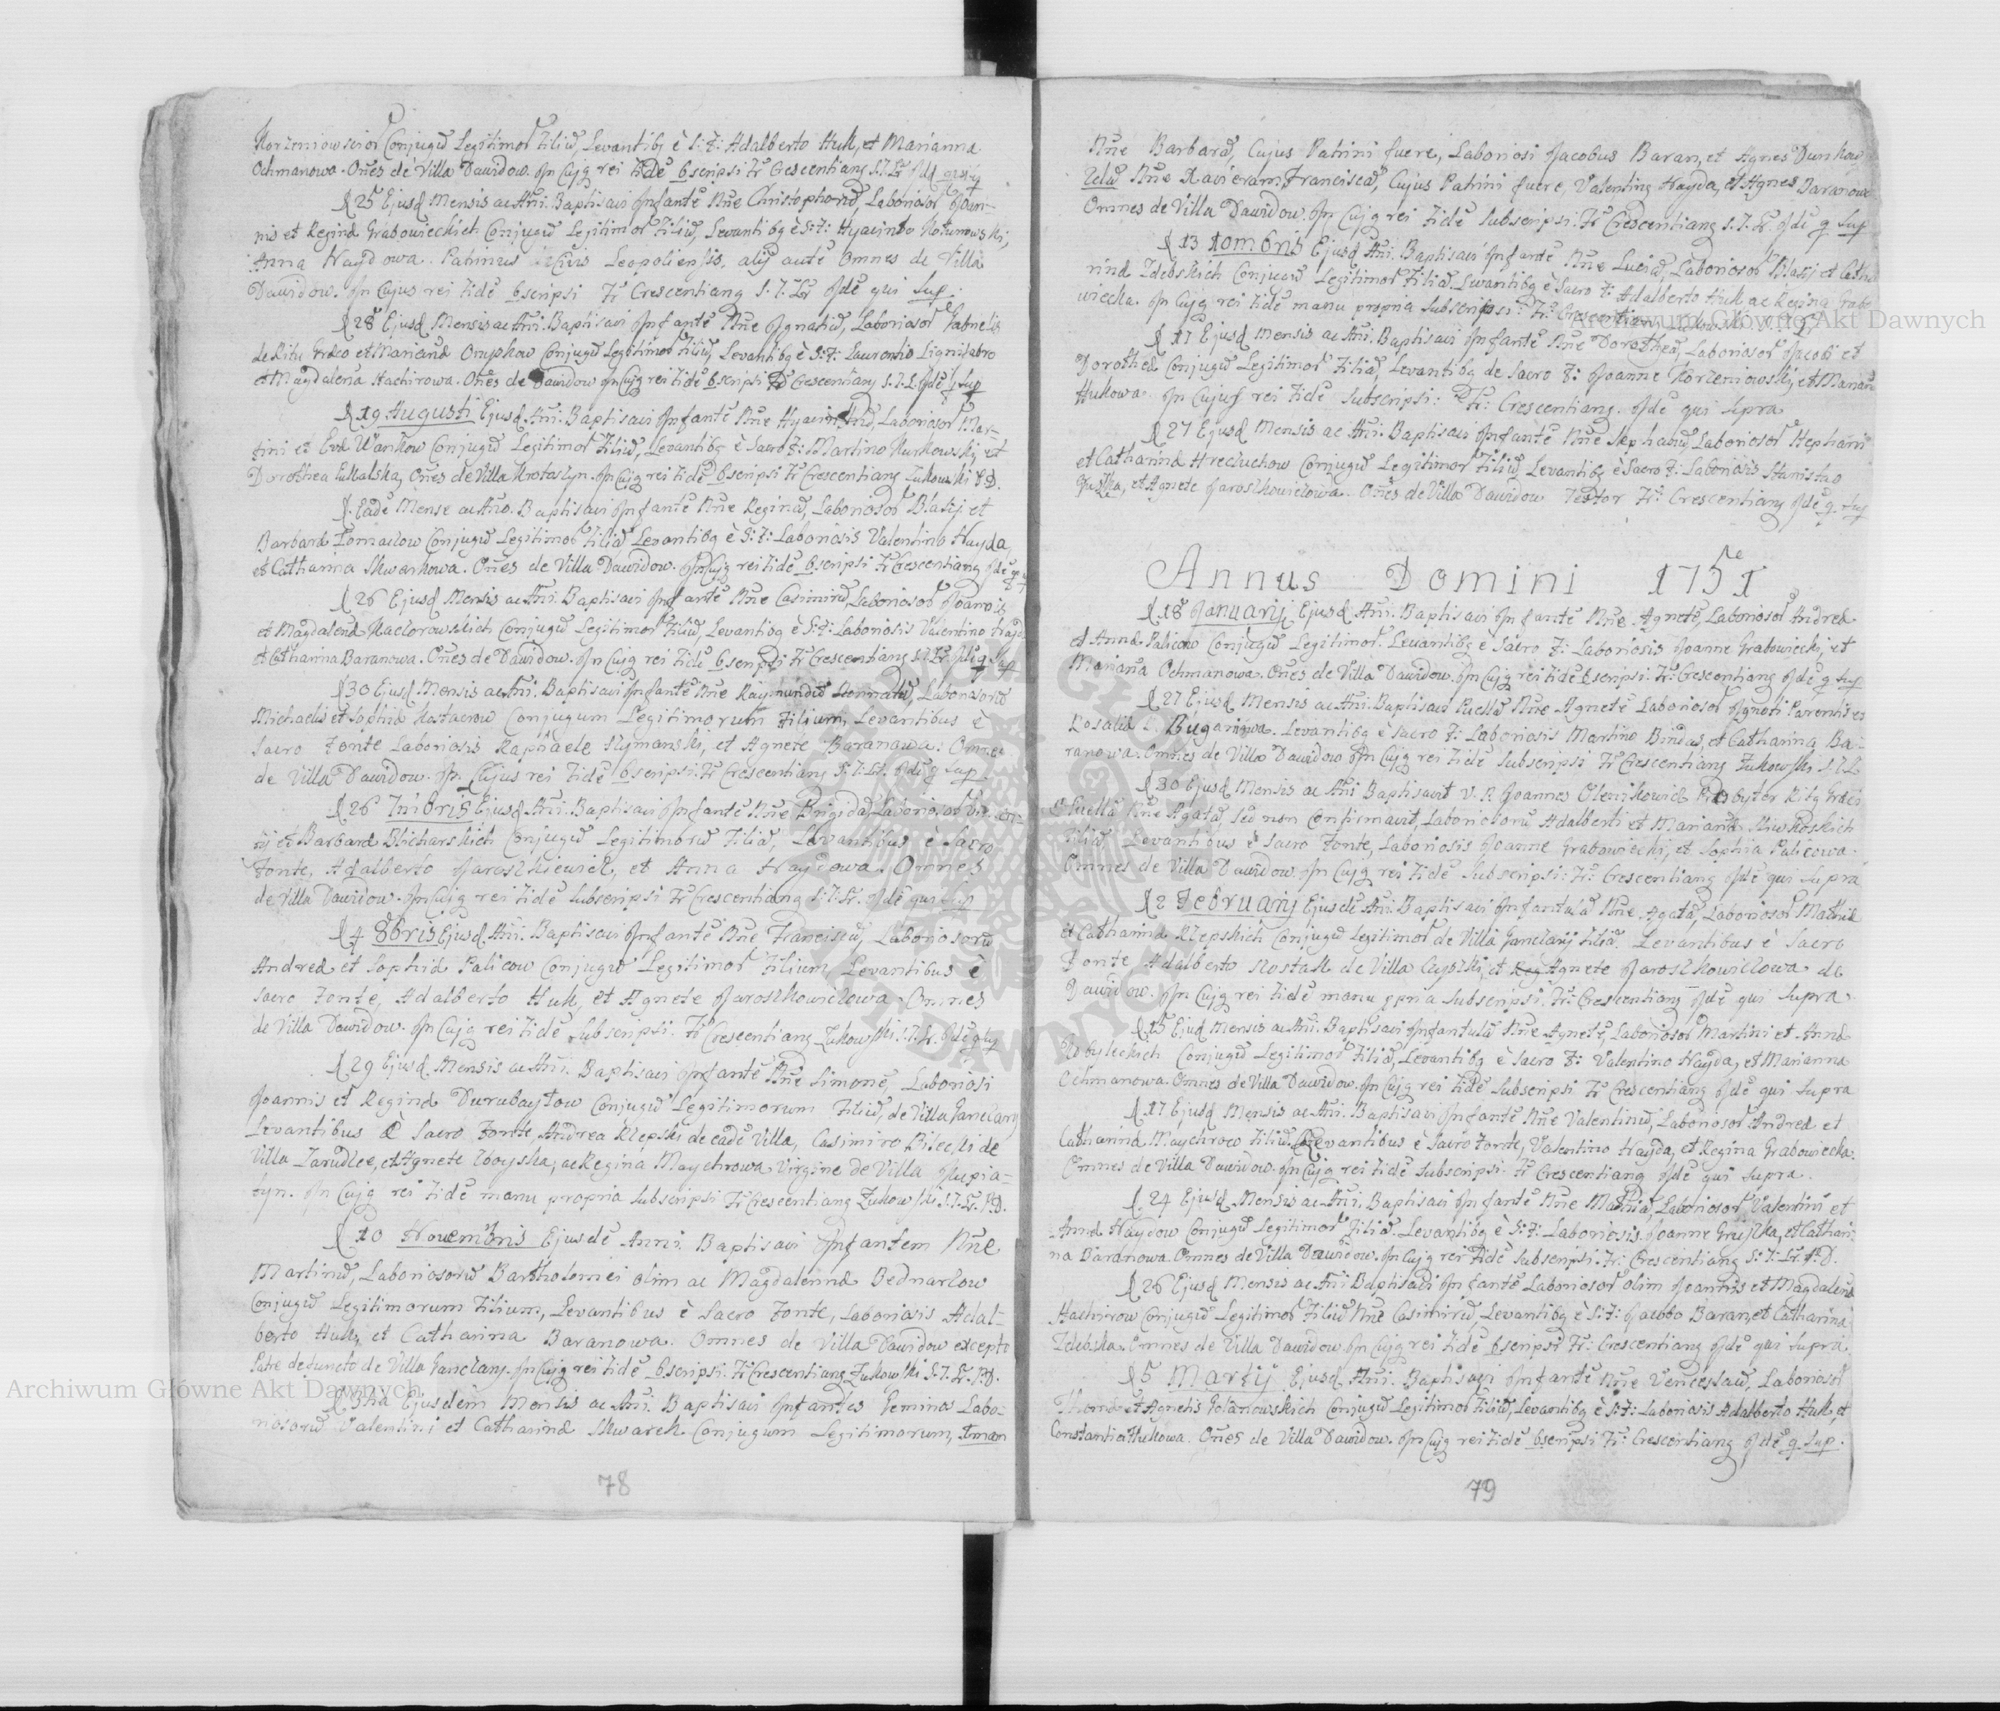 Korzeniowscior Conjugū Legitimor Filiū, Levantibg è S: F: Adalberto Huk, et Marianna
Ochmanowa. Oñes de Villa Dawidow. In Cujg rei Fidē Bscripsi Fr Crescentiang S.T.Lr
¶ 25 Ejusd Mensis ac Añi. Baptisavi Infantē Nñe Christophorū, Laboriosor Joan-
nis et Reginæ Grabowieckich Conjugū Legitimor Filiū, Levantibg è S: F: Hyacinto Kotunowski,
Anna Haydowa. Patrinus Civis Leopoliensis, alij autē Omnes de Villa
Dawidow. In Cujus rei Fidē Bscripsi Fr Crescentiang S. T. Lr Idē qui Sup:
¶ 28 Ejusd Mensis ac Añi. Baptisavi Infantē Nñe Ignatiū, Laboriosor Gabrielis
de Ritu Græco et Mariannæ Onyskow Conjugū Legitimor Filiū, Levantibg è S: F: Laurentio Lignifabro
et Magdalena Hachirowa. Oñes de Dawidow In Cujg rei Fidē Bscripsi Fr Crescentiang S.T.L. Idē q Sup
¶ 19 Augusti Ejusd. Añi. Baptisavi Infantē Nñe Hyacinthū, Laboriosor Mar-
tini et Evæ Wankow Conjugū Legitimor Filiū, Levantibg è Sacro F: Martino Kurkowski et
Dorothea Lukalska, Oñes de Villa Krotoszyn. In Cujg rei Fidē Bscripsi Fr Crescentiang Zukowski
¶. Eadē Mense ac Año. Baptisavi Infantē Nñe Reginā, Laboriosor Blasij et
Barbaræ Tomailow Conjugū Legitimor Filiā Levantibg è S: F: Laboriosis Valentino Hayda,
et Catharina Skwarkowa. Oñes de Villa Dawidow. In Cujg rei Fidē Bscripsi Fr Crescentiang Idē q
¶ 26 Ejusd Mensis ac Añi. Baptisavi Infantē Nñe Casimirū, Laboriosor Joannis
et Magdalenæ Kaczorowskich Conjugū Legitimor Filiū, Levantibg è S: F: Laboriosis Valentino Hayda
et Catharina Baranowa. Oñes de Dawidow. In Cujg rei Fidē Bscripsi Fr Crescentiang S.T.Lr Idē q Sup
¶ 30 Ejusd. Mensis ac Añi. Baptisavi Infantē Nñe Raymundū Nonnatū, Laboriosorū
Michaelis et Sophiæ Kostacow Conjugum Legitimorum Filium, Levantibus è
Sacro Fonte Laboriosis Raphaele Szymanski, et Agnete Baranowa. Omnes
de Villa Dawidow. In Cujus rei Fidē Bscripsi. Fr Crescentiang S: T: Lr. Idē q Sup
¶ 26 7mbris Ejusd. Añi. Baptisavi Infantē Nñe Brigidā, Laboriosor
et Barbaræ Blicharskich Conjugū Legitimorū Filiā, Levantibus è Sacro
Fonte, Adalberto Jaroszkiewicz, et Anna Haydowa. Omnes
de Villa Dawidow. In Cujg rei Fidē Subscripsi Fr Crescentiang S: T: Lr. Idē qui Sup
¶ 4 8bris Ejusd. Añi. Baptisavi Infantē Nñe Franciscū, Laboriosorū
Andreæ et Sophiæ Palicow Conjugū Legitimor Filium Levantibus è
Sacro Fonte, Adalberto Huk, et Agnete Jaroszkowiczowa. Omnes
de Villa Dawidow. In Cujg rei Fidē Subscripsi. Fr Crescentiang Zukowski S.T.Lr. Idē
¶ 29 Ejusd. Mensis ac Añi. Baptisavi Infantē Nñe Simonē, Laboriosi
Joannis et Reginæ Durubaytow Conjugū Legitimorum Filiū, de Villa Ganczary
Levantibus è Sacro Fonte, Andrea Klepski de eadē Villa, Casimiro Bilecki de
Villa Zarudlce, et Agnete Zboyska, ac Regina Maychrowa Virgine de Villa Jupia-
tyn. In Cujg rei Fidē manu propria Subscripsi Fr Crescentiang Zukowski. S.T.Lr. P.D.
¶ 10 Novembris Ejusdē Anni. Baptisavi Infantem Nñe
Martinū, Laboriosorū Bartholomei olim ac Magdalennæ Bednarzow
Conjugū Legitimorum Filium, Levantibus è Sacro Fonte, Laboriosis Adal-
berto Huk, et Catharina Baranowa. Omnes de Villa Dawidow excepto
Patre defuncto de Villa Ganczary. In Cujg rei Fidē Bscripsi. Fr Crescentiang Zukowski S.T.Lr. P.D.
¶ Ejusdem Mensis ac Añi. Baptisavi Infantes Geminos Labo-
riosorū Valentini et Catharinæ Skwarek Conjugum Legitimorum, Imam
78
Nñe Barbarā, Cujus Patrini fuere, Laboriosi Jacobus Baran, et Agnes Dunkow
2dā Nñe Xavieram Franciscā, Cujus Patrini fuere, Valenting Hayda, et Agnes Baranowa
Omnes de Villa Dawidow. In Cujg rei Fidē Subscripsi. Fr Crescentiang S. T. Lr. Idē q Sup
¶ 13 10mbris Ejusd Añi. Baptisavi Infantē Nñe Luciā, Laboriosor Blasij et Catha
rinæ Zdebskich Conjugū Legitimor Filiā. Levantibg è Sacro F: Adalberto Huk ac Regina Grabo
wiecka. In Cujg rei Fidē manu propria Subscripsi. Fr. Crescentiang Zukowski
¶ 17 Ejusd Mensis ac Añi. Baptisavi Infantē Nñe Dorotheā, Laboriosor Jacobi et
Dorotheæ Conjugū Legitimor Filiā, Levantibg de Sacro F: Joanne Korzeniowski, et Marian
Hukowa. In Cujus rei Fidē Subscripsi: Fr: Crescentiang. Idē qui Supra
¶ 27 Ejusd Mensis ac Añi. Baptisavi Infantē Nñe Stephanū, Laboriosor Stephani
et Catharinæ Hreczuchow Conjugū Legitimor Filiū, Levantibg è Sacro F: Laboriosis Stanislao
Gruszka, et Agnete Jaroszkowiczowa. Oñes de Villa Dawidow Testor Fr: Crescentiang Idē q. Sup
Annus Domini 1751
¶ 18 Januarij Ejusd Añi. Baptisavi Infantē Nñe Agnetē, Laboriosor Andreæ
et Annæ Palicow Conjugū Legitimor. Levantibg è Sacro F: Laboriosis Joanne Grabowiecki, et
Mariana Ochmanowa. Oñes de Villa Dawidow. In Cujg rei Fidē Bscripsi. Fr: Crescentiang Idē q Sup
¶ 27 Ejusd Mensis ac Añi. Baptisavi Puellā Nñe Agnetē Laboriosor Ignoti Parentis et
Rosaliæ Buganiowa. Levantibg è Sacro F: Laboriosis Martino Bindas, et Catharina Ba-
ranowa. Omnes de Villa Dawidow In Cujg rei Fidē Subscripsi Fr Crescentiang Zukowski S.T.L
¶ 30 Ejusd Mensis ac Añi Baptisavit V. R. Joannes Olenikowicz Presbyter Ritg Græci
Puellā Nñe Agatā, Sed non Confirmavit, Laboriosorū Adalberti et Mariannæ Kiwkoskich
Filiā, Levantibus è Sacro Fonte, Laboriosis Joanne Grabowiecki, et Sophia Palicowa.
Omnes de Villa Dawidow. In Cujg rei Fidē Subscripsi: Fr: Crescentiang Idē qui Supra
¶ 2 Februarij Ejusdē Añi. Baptisavi Infantulā Nñe Agatā, Laboriosor Mathiæ
et Catharinæ Klepskich Conjugū Legitimor de Villa Ganczary Filiā. Levantibus è Sacro
Fonte Adalberto Kostak de Villa Czyszki, et Agnete Jaroszkowiczowa de
Dawidow. In Cujg rei Fidē manu ppria Subscripsi. Fr: Crescentiang Idē qui Supra
¶ 15 Ejusd Mensis ac Añi. Baptisavi Infantulā Nñe Agnetē, Laboriosor Martini et Annæ
Kobyleckich Conjugū Legitimor Filiā, Levantibg è Sacro F: Valentino Hayda, et Marianna
Ochmanowa. Omnes de Villa Dawidow. In Cujg rei Fidē Subscripsi Fr Crescentiang Idē qui Supra
¶ 17 Ejusd Mensis ac Añi. Baptisavi Infantē Nñe Valentinū, Laboriosor Andreæ et
Catharinæ Maychrow Filiū. Levantibus è Sacro Fonte, Valentino Hayda, et Regina Grabowiecka.
Omnes de Villa Dawidow. In Cujg rei Fidē Subscripsi. Fr Crescentiang Idē qui Supra.
¶ 24 Ejusd Mensis ac Añi. Baptisavi Infantē Nñe Mathiā, Laboriosor Valentini et
Annæ Haydow Conjugū Legitimor Filiū. Levantibg è S: F: Laboriosis. Joanne Gruszka, et Cathari-
na Baranowa. Omnes de Villa Dawidow. In Cujg rei Fidē Subscripsi. Fr: Crescentiang S: T: Lr P.D.
¶ 26 Ejusd Mensis ac Añi. Baptisavi Infantē Laboriosor olim Joannis et Magdalenæ
Hachirow Conjugū Legitimor Filiū Nñe Casimirū, Levantibg è S: F: Jacobo Baran, et Catharina
Zdebska. Omnes de Villa Dawidow. In Cujg rei Fidē Bscripsi Fr: Crescentiang Idē qui Supra.
¶ 5 Martij Ejusd Añi. Baptisavi Infantē Nñe Venceslaū, Laboriosor
Thomæ et Agnetis Golanowskich Conjugū Legitimor Filiū, Levantibg è S: F: Laboriosis Adalberto Huk, et
Constantia Hukowa. Oñes de Villa Dawidow. In Cujg rei Fidē Bscripsi Fr: Crescentiang Idē q. Sup.
79
Archiwum Główne Akt Dawnych
Archiwum Główne Akt Dawnych